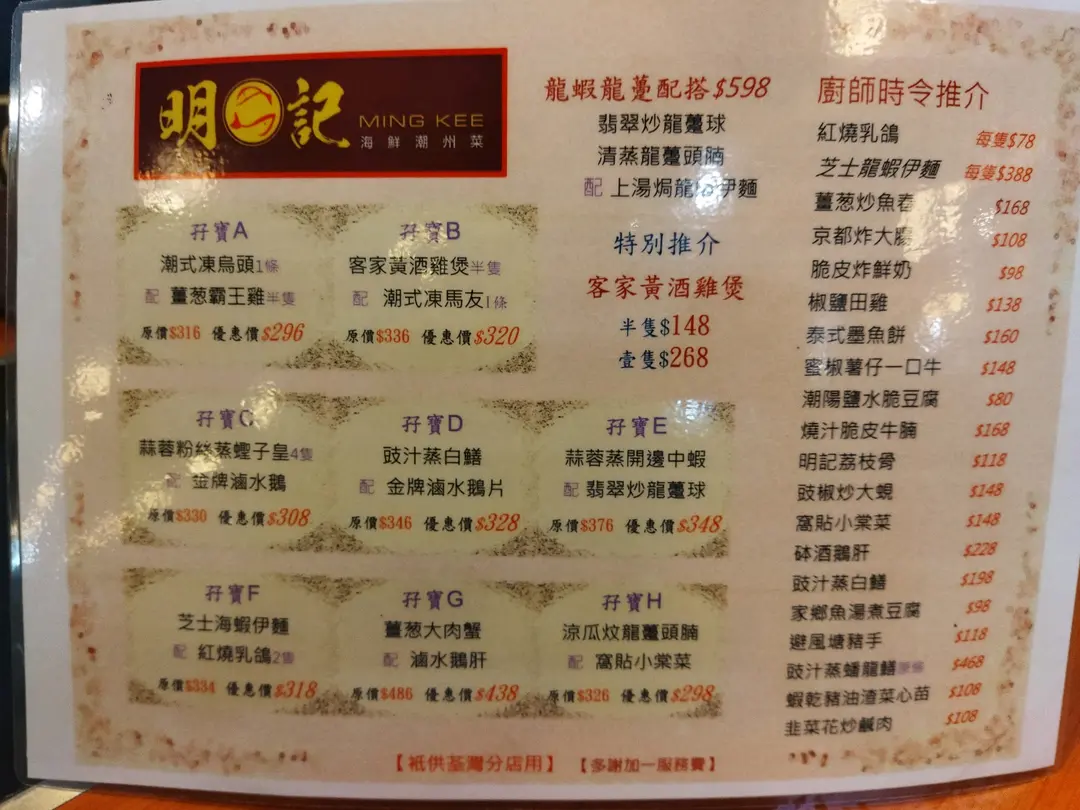 明記
MING KEE
海鮮潮州菜
孖寶A
潮式凍烏頭1條
配 薑葱霸王雞半隻
原價$316 優惠價$296
孖寶B
客家黃酒雞煲半隻
配 潮式凍馬友1條
原價$336 優惠價$320
孖寶C
蒜蓉粉絲蒸蟶子皇4隻
配 金牌滷水鵝
原價$330 優惠價$308
孖寶D
豉汁蒸白鱔
配 金牌滷水鵝片
原價$346 優惠價$328
孖寶E
蒜蓉蒸開邊中蝦
配 翡翠炒龍躉球
原價$376 優惠價$348
孖寶F
芝士海蝦伊麵
配 紅燒乳鴿2隻
原價$334 優惠價$318
孖寶G
薑葱大肉蟹
配 滷水鵝肝
原價$486 優惠價$438
孖寶H
涼瓜炆龍躉頭腩
配 窩貼小棠菜
原價$326 優惠價$298
龍蝦龍躉配搭$598
翡翠炒龍躉球
清蒸龍躉頭腩
配 上湯焗龍 伊麵
特別推介
客家黃酒雞煲
半隻$148
壹隻$268
廚師時令推介
紅燒乳鴿 每隻$78
芝士龍蝦伊麵 每隻$388
薑葱炒魚春 $168
京都炸大腸 $108
脆皮炸鮮奶 $98
椒鹽田雞 $138
泰式墨魚餅 $160
蜜椒薯仔一口牛 $148
潮陽鹽水脆豆腐 $80
燒汁脆皮牛腩 $168
明記荔枝骨 $118
豉椒炒大蜆 $148
窩貼小棠菜 $148
砵酒鵝肝 $228
豉汁蒸白鱔 $198
家鄉魚湯煮豆腐 $98
避風塘豬手 $118
豉汁蒸蟠龍鱔 $468
蝦乾豬油渣菜心苗 $108
韭菜花炒鹹肉 $108
【祇供荃灣分店用】 【多謝加一服務費】